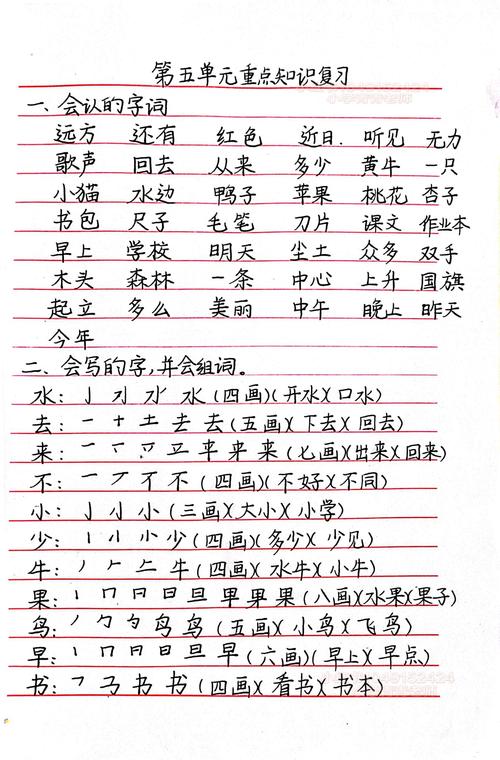 第五单元重点知识复习
一、会认的字词
远方 还有 红色 近日. 听见 无力
歌声 回去 从来 多少 黄牛 一只
小猫 水边 鸭子 苹果 桃花 杏子
书包 尺子 毛笔 刀片 课文 作业本
早上 学校 明天 尘土 众多 双手
木头 森林 一条 中心 上升 国旗
起立 多么 美丽 中午 晚上 昨天
今年
二、会写的字,并会组词。
水: 亅 水 (四画)(开水)(口水)
去: 一 十 土 去 去 (五画)(下去)(回去)
来: 一 来 来 (七画)(出来)(回来)
不: 一 丆 不 不 (四画)(不好)(不同)
小: 亅 小 小 (三画)(大小)(小学)
少: 丨 小 小 少 (四画)(多少)(少见)
牛: 丿 𠂉 牛 (四画)(水牛)(小牛)
果: 丨 冂 日 日 旦 早 果 果 (八画)(水果)(果子)
鸟: 丿 勹 鸟 鸟 (五画)(小鸟)(飞鸟)
早: 丨 冂 日 日 旦 早 (六画)(早上)(早点)
书: 乛 书 书 (四画)(看书)(书本)